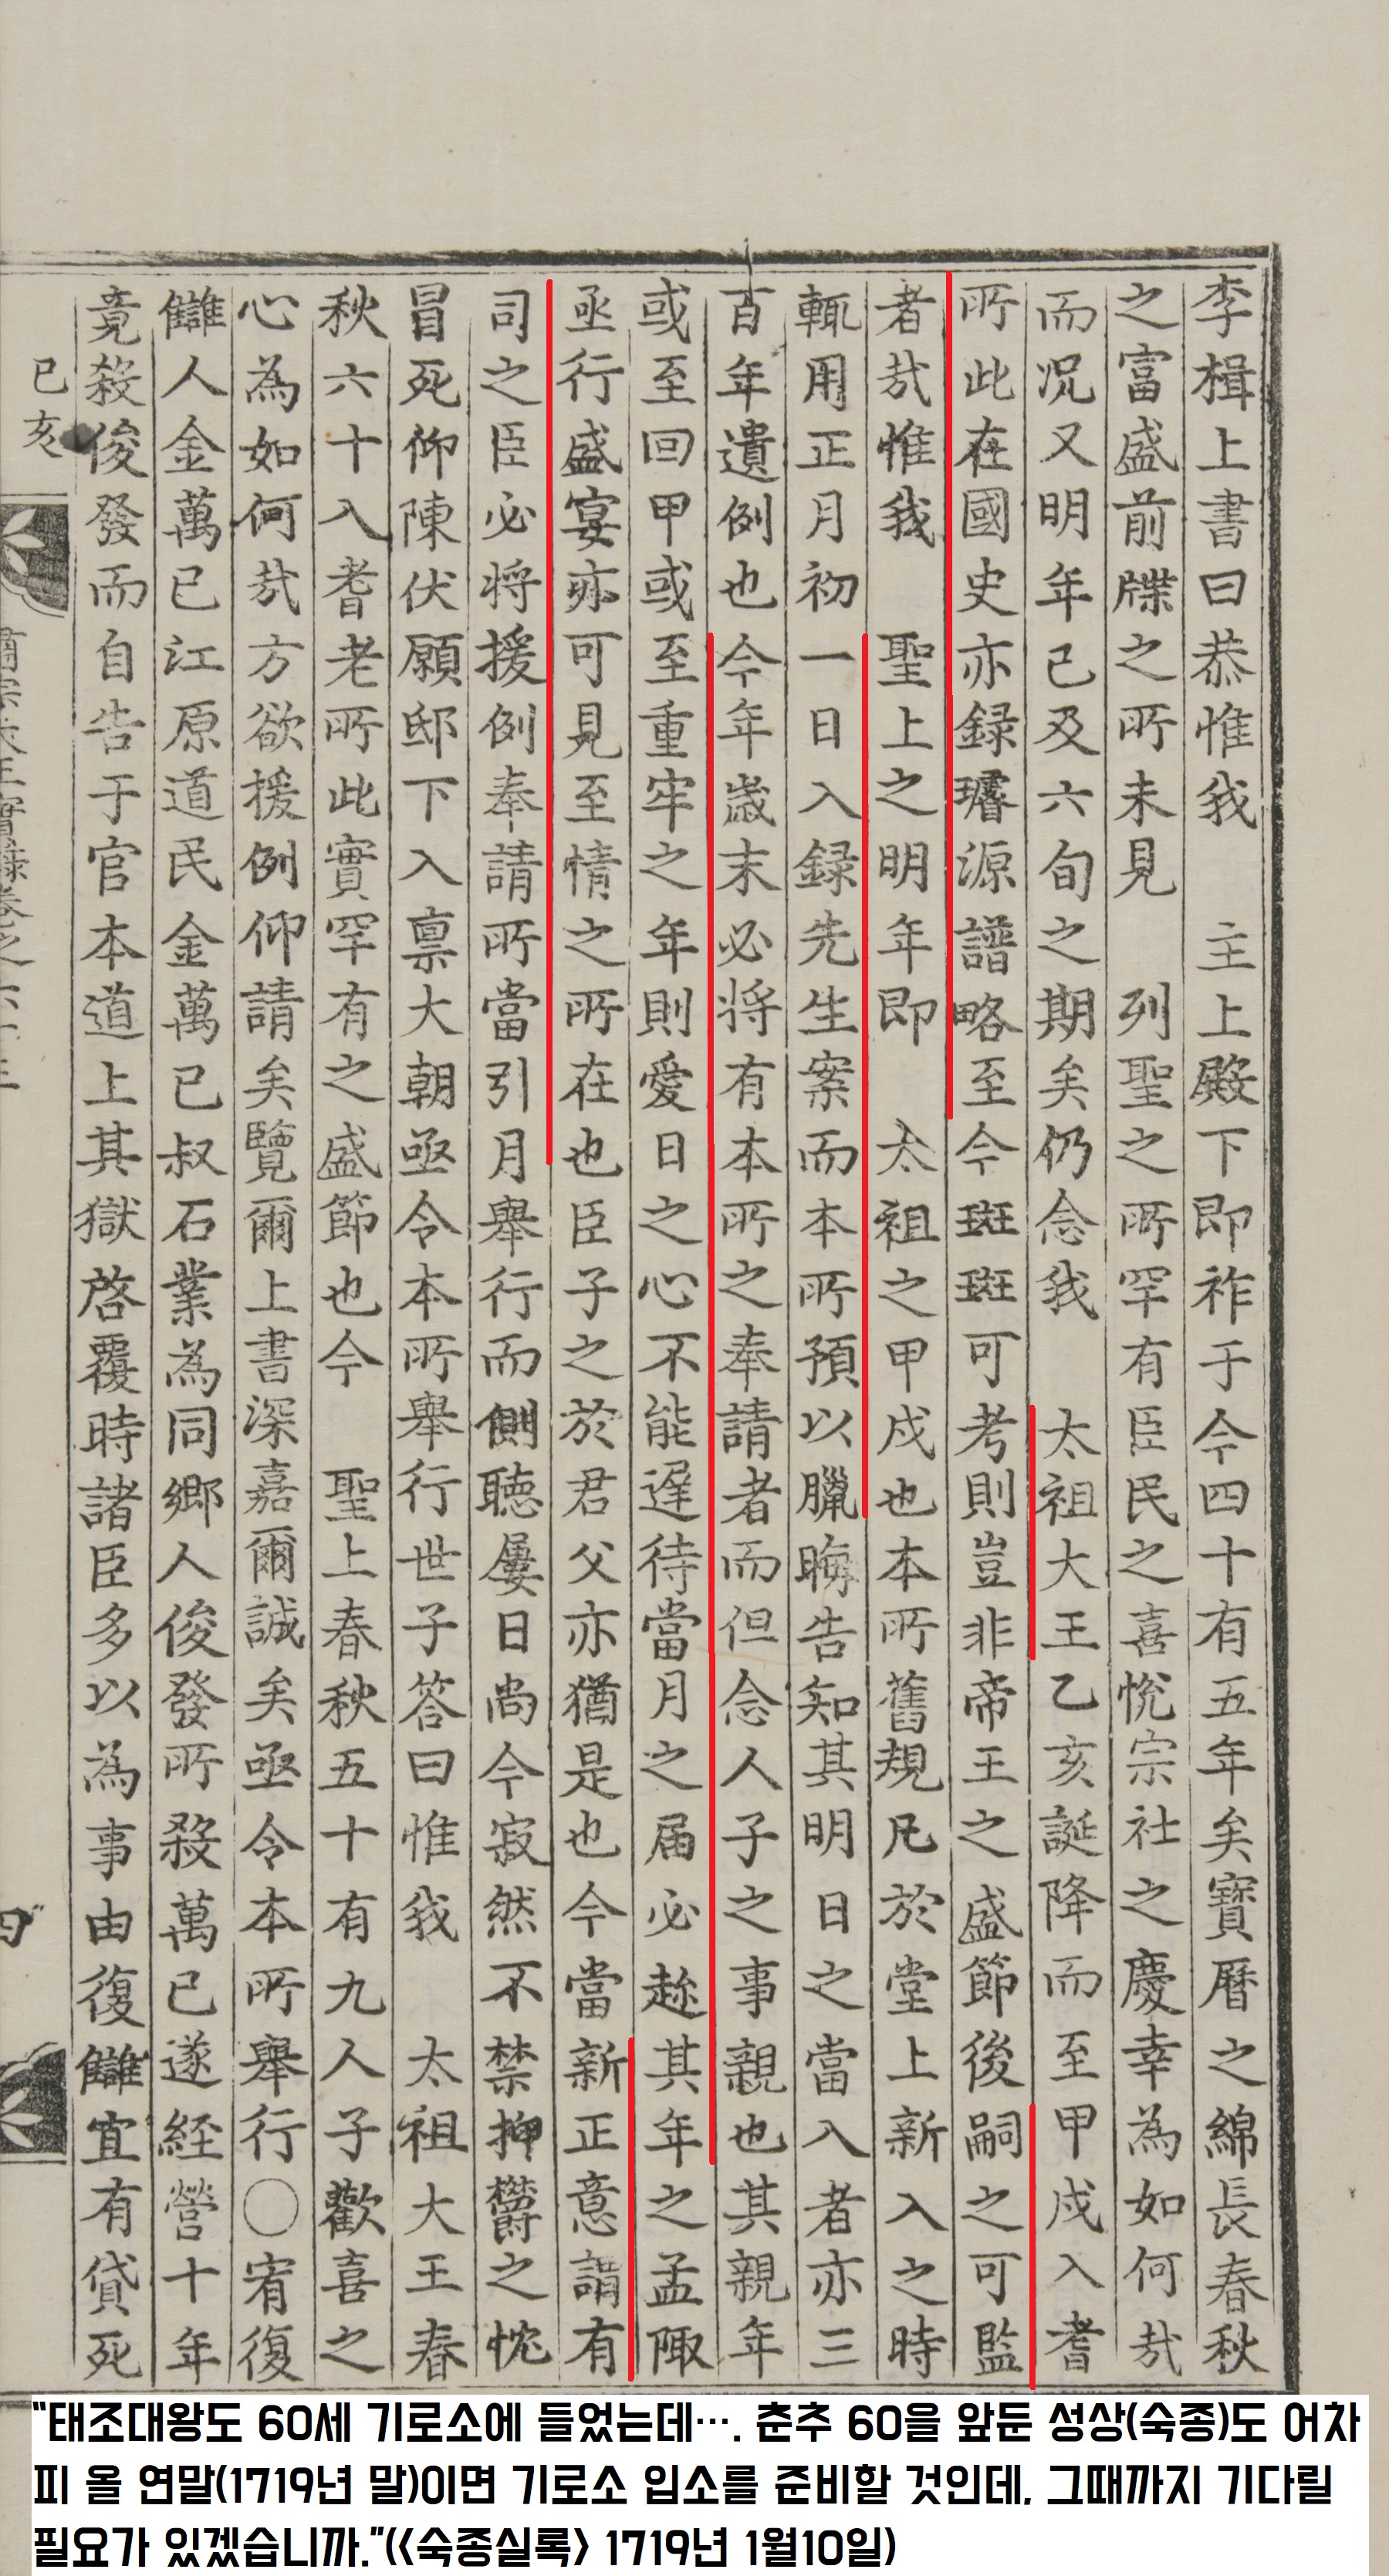 李楫上書曰恭惟我 主上殿下即祚于今四十有五年矣寶曆之綿長春秋
之富盛前牒之所未見 列聖之所罕有臣民之喜悅宗社之慶幸為如何哉
而況又明年已及六旬之期矣仍念我 太祖大王乙亥誕降而至甲戌入耆
所此在國史亦録璿源譜略至今斑斑可考則豈非帝王之盛節後嗣之可監
者哉惟我 聖上之明年即 太祖之甲戌也本所舊規凡於堂上新入之時
輒用正月初一日入録先生案而本所預以臘晦告知其明日之當入者亦三
百年遺例也今年歲末必將有本所之奉請者而但念人子之事親也其親年
或至回甲或至重牢之年則愛日之心不能遲待當月之届必趂其年之孟陬
亟行盛宴亦可見至情之所在也臣子之於君父亦猶是也今當新正意謂有
司之臣必將援例奉請所當引月舉行而側聽屢日尚今寂然不禁抑欝之忱
冒死仰陳伏願邸下入禀大朝亟令本所舉行世子答曰惟我 太祖大王春
秋六十入耆老所此實罕有之盛節也今 聖上春秋五十有九人子歡喜之
心為如何哉方欲援例仰請矣覽爾上書深嘉爾誠矣亟令本所舉行○宥復
讎人金萬已江原道民金萬已叔石業為同鄉人俊發所殺萬已遂經營十年
竟殺俊發而自告于官本道上其獄啓覆時諸臣多以為事由復讎宜有貸死
己亥
肅宗大王實錄卷之六十三
四
"태조대왕도 60세 기로소에 들었는데…. 춘추 60을 앞둔 성상(숙종)도 어차
피 올 연말(1719년 말)이면 기로소 입소를 준비할 것인데, 그때까지 기다릴
필요가 있겠습니까."(<숙종실록> 1719년 1월10일)